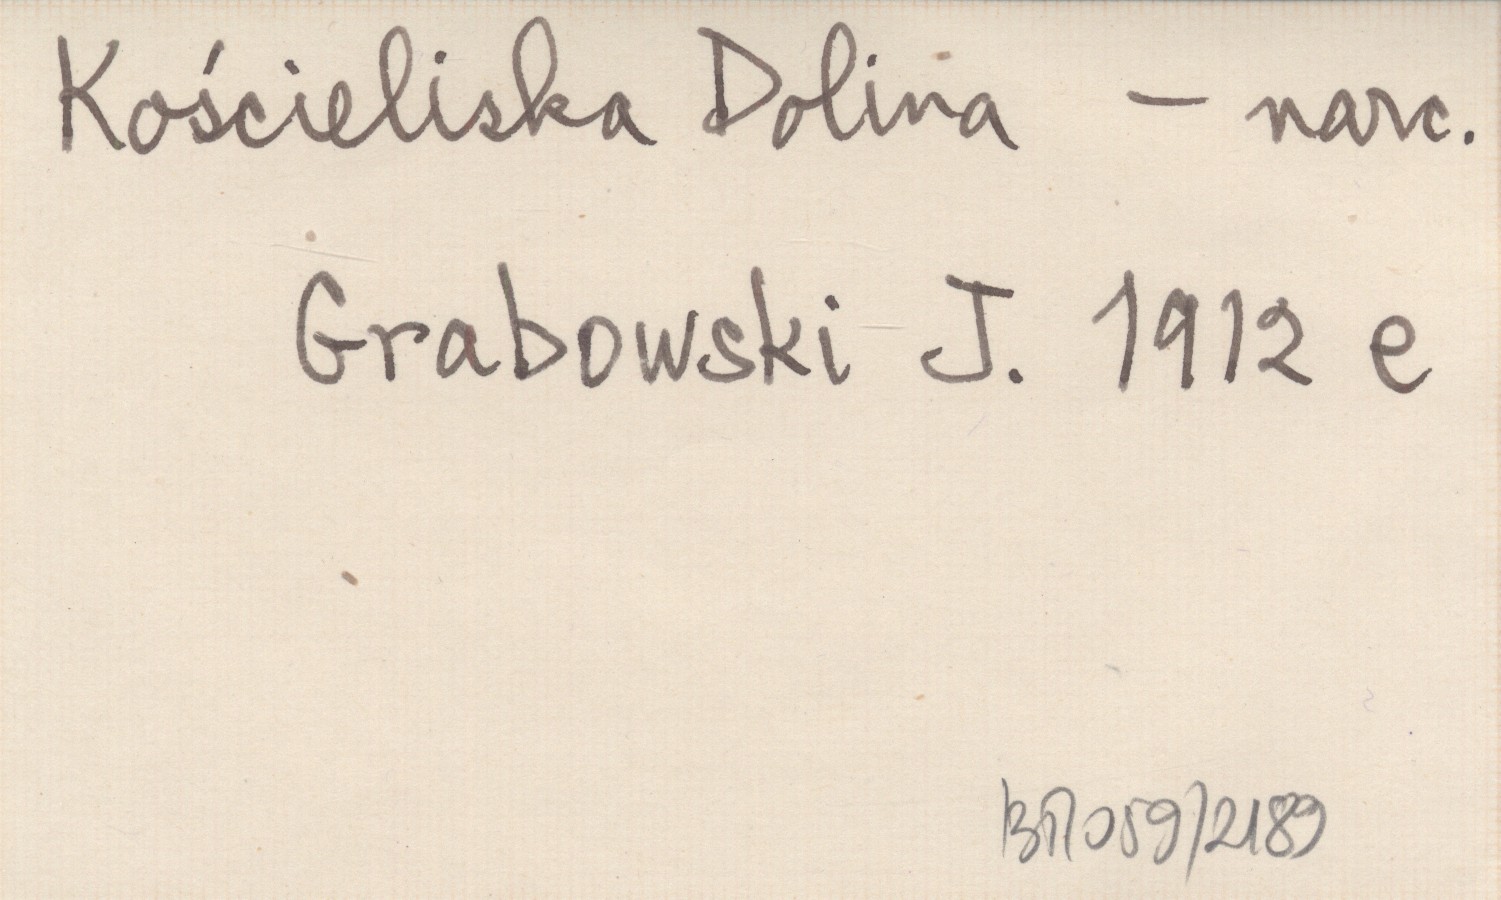 Kościeliska Dolina – narc.
Grabowski J. 1912 e